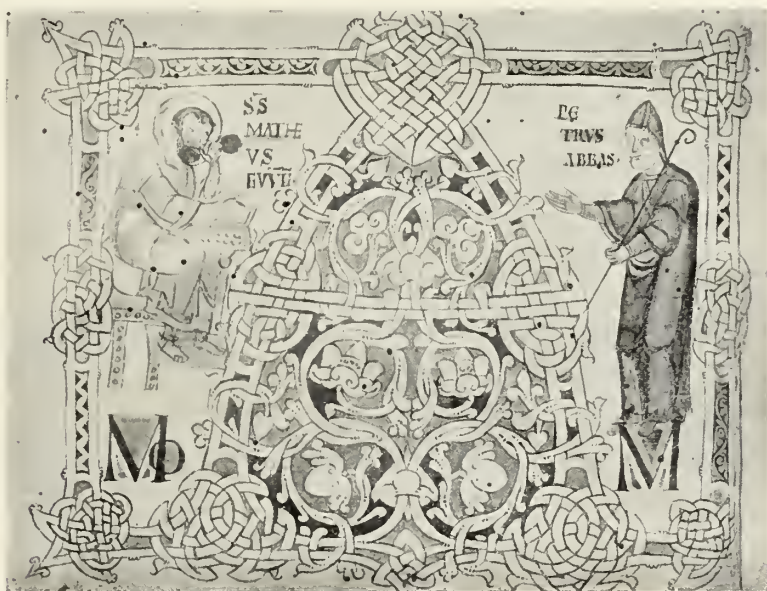 S̄S̄
MATHE
VS
PE
TRVS
ABBAS·
A
Mo
M